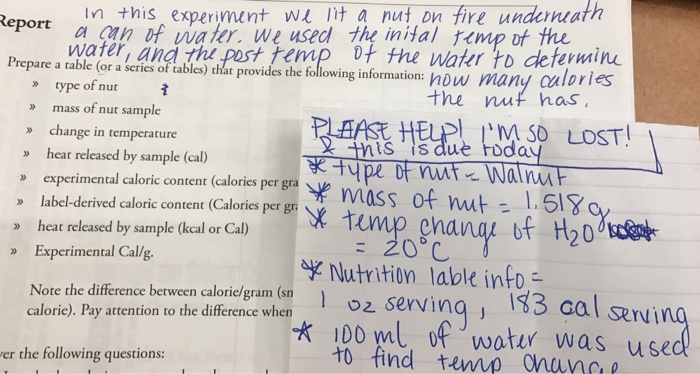 In this experiment we lit a nut on fire underneath
Report
a can of water. We used the inital temp of the
water, and the post temp of the water to determine
Prepare a table (or a series of tables) that provides the following information:
how many calories
the nut has.
» type of nut
» mass of nut sample
» change in temperature
» heat released by sample (cal)
» experimental caloric content (calories per gra
» label-derived caloric content (Calories per gr
» heat released by sample (kcal or Cal)
» Experimental Cal/g.
Note the difference between calorie/gram (sm
calorie). Pay attention to the difference when
er the following questions:
PLEASE HELP! I'M SO LOST!
& this is due today
* type of nut - Walnut
* mass of nut = 1.518g
* temp change of H2O
= 20°C
* Nutrition lable info =
1 oz serving, 183 cal serving
* 100 ml of water was used
to find temp change